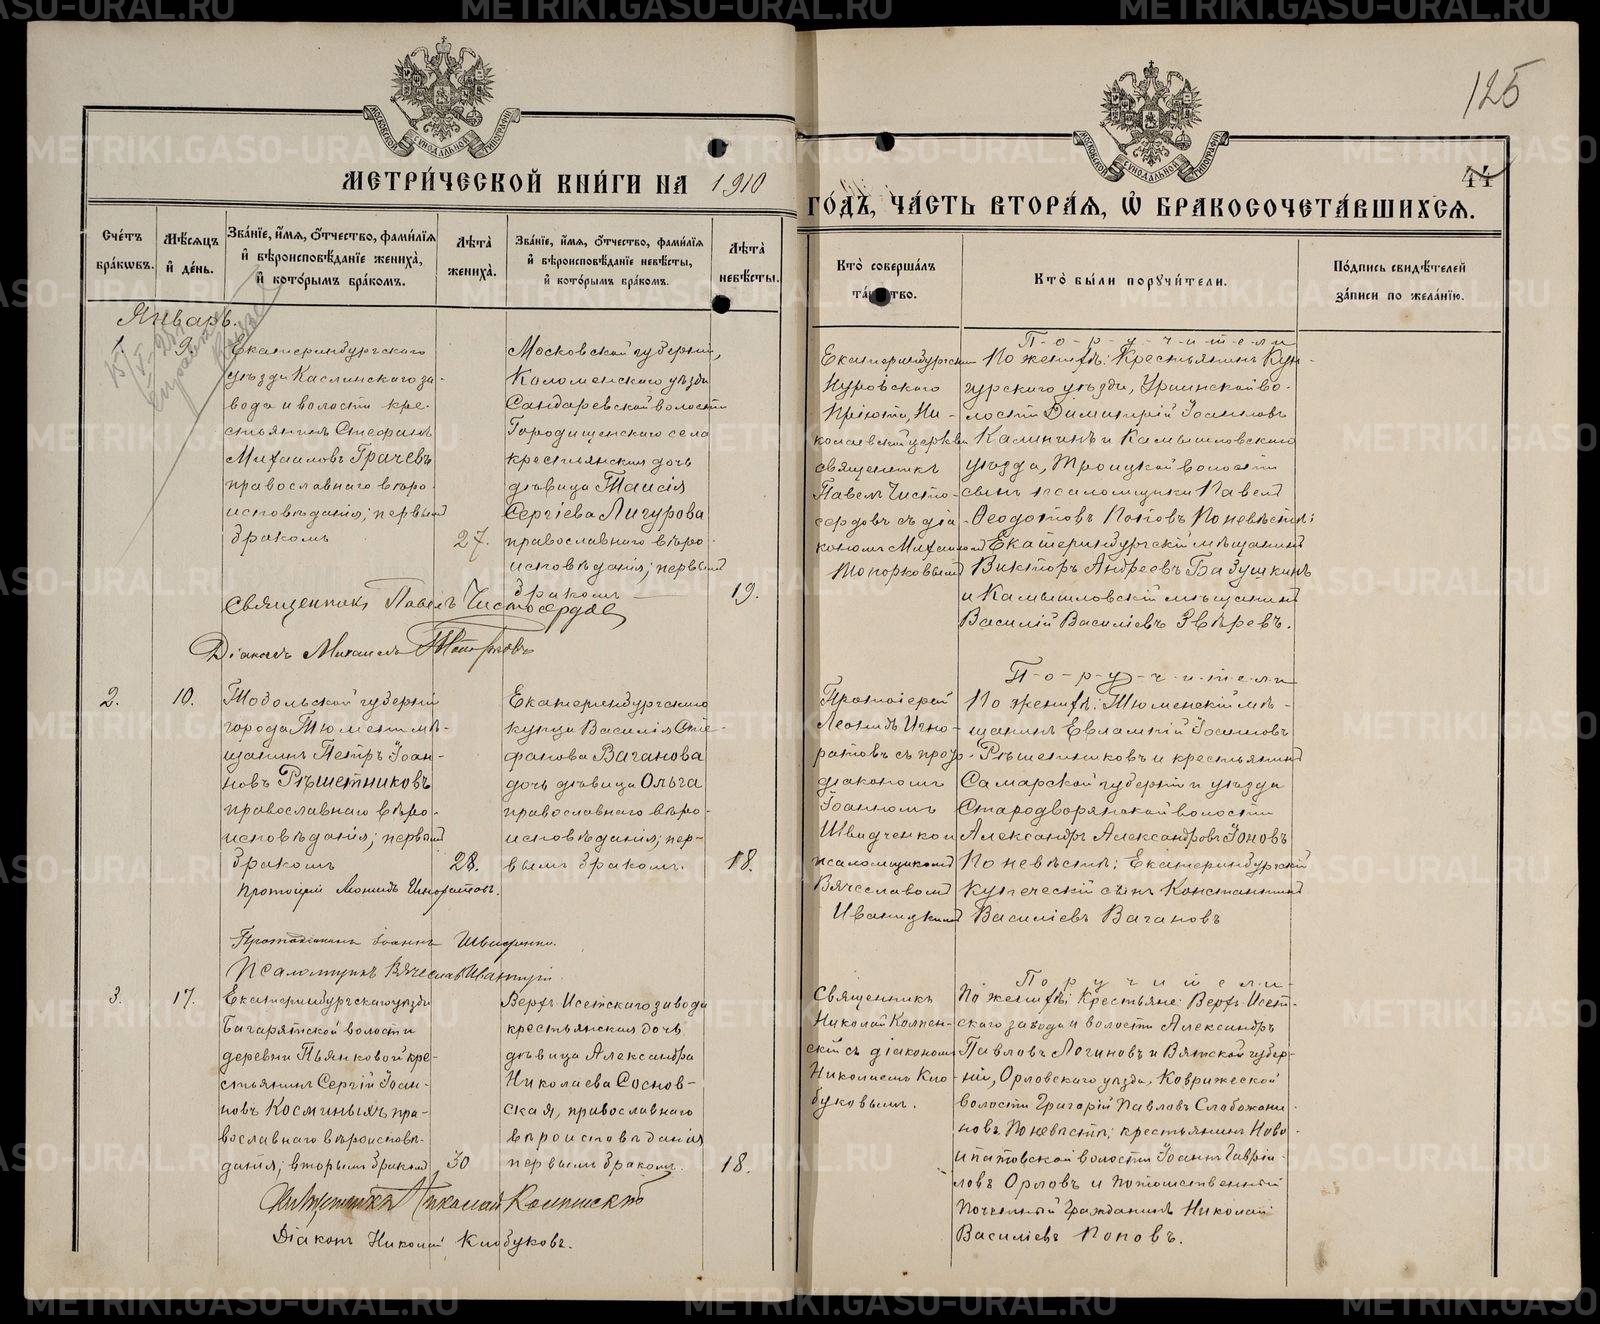 125
МЕТРИ́ЧЕСКОЙ КНИ́ГИ НА 1910
ГО́ДЪ, ЧА́СТЬ ВТОРА́Я, Ѡ БРАКОСОЧЕТА́ВШИХСЯ.
44
Сче́тъ бра́кѡвъ.
Мѣ́сяцъ и҆ де́нь.
Зва́нїе, и҆́мя, ѻ҆́тчество, фами́лїя
и҆ вѣроисповѣ́данїе жениха̀,
и҆ кото́рымъ бра́комъ.
Лѣта̀ жениха̀.
Зва́нїе, и҆́мя, ѻ҆́тчество, фами́лїя
и҆ вѣроисповѣ́данїе невѣ́сты,
и҆ кото́рымъ бра́комъ.
Лѣта̀ невѣ́сты.
Кто̀ соверша́лъ
та́инство.
Кто̀ бы́ли порꙋчи́тели.
По́дпись свидѣ́телей
за́писи по жела́нїю.
Январь.
1.
9.
Екатеринбургскаго
уѣзда Каслинскаго за-
вода и волости кре-
стьянинъ Стефанъ
Михаиловъ Грачевъ
православнаго вѣро-
исповѣданія; первымъ
бракомъ
27.
Московской губерніи,
Коломенскаго уѣзда
Сандаревской волости
Городищенскаго села
крестьянская дочь
дѣвица Таисія
Сергіева Лигурова
православнаго вѣро-
исповѣданія; первымъ
бракомъ
19.
Екатеринбургскаго
Нуровскаго
Пріюта, Ни-
колаевской церкви
священникъ
Павелъ Чисто-
сердовъ съ діа-
кономъ Михаиломъ
Топорковымъ
Поручители
По женихѣ: Крестьянинъ Кун-
гурскаго уѣзда, Уринской во-
лости Димитрій Іоанновъ
Калининъ и Камышловскаго
уѣзда, Троицкой волости
сынъ псаломщика Павелъ
Ѳеодотовъ Поповъ По невѣстѣ:
Екатеринбургскій мѣщанинъ
Викторъ Андреевъ Бабушкинъ
и Камышловскій мѣщанинъ
Василій Василіевъ Звѣревъ.
Священникъ Павелъ Чистосердовъ
Діаконъ Михаилъ Топорковъ
2.
10.
Тобольской губерніи
города Тюмени мѣ-
щанинъ Петръ Іоан-
новъ Рѣшетниковъ
православнаго вѣро-
исповѣданія; первымъ
бракомъ
28.
Екатеринбургскаго
купца Василія Сте-
фанова Ваганова
дочь дѣвица Ольга
православнаго вѣро-
исповѣданія; пер-
вымъ бракомъ.
18.
Протоіерей
Леонидъ Игно-
ратовъ съ прото-
діакономъ
Іоанномъ
Швидченко и
псаломщикомъ
Вячеславомъ
Иваницкимъ
Поручители
По женихѣ: Тюменскій мѣ-
щанинъ Евлампій Іоанновъ
Рѣшетниковъ и крестьянинъ
Самарской губерніи и уѣзда
Стародворянской волости
Александръ Александровъ Іоновъ
По невѣстѣ: Екатеринбургскій
купеческій сынъ Константинъ
Василіевъ Вагановъ
Протоіерей Леонидъ Игноратовъ.
Протодіаконъ Іоаннъ Швидченко.
Псаломщикъ Вячеславъ Иваницкій
3.
17.
Екатеринбургскаго уѣзда
Багарятской волости
деревни Пьянковой кре-
стьянинъ Сергій Іоан-
новъ Косминыхъ пра-
вославнаго вѣроисповѣ-
данія; вторымъ бракомъ
30
Верхъ-Исетскаго завода
крестьянская дочь
дѣвица Александра
Николаева Соснов-
ская, православнаго
вѣроисповѣданія
первымъ бракомъ.
18.
Священникъ
Николай Колпен-
скій съ діакономъ
Николаемъ Кло-
буковымъ.
Поручители
По женихѣ: Крестьяне: Верхъ-Исет-
скаго завода и волости Александръ
Павловъ Логиновъ и Вятской губер-
ніи, Орловскаго уѣзда, Коврижеской
волости Григорій Павловъ Слабожани-
новъ По невѣстѣ; крестьянинъ Ново-
ипатовской волости Іоаннъ Гавріи-
ловъ Орловъ и Потомственный
Почетный Гражданинъ Николай
Василіевъ Поповъ.
Священникъ Николай Колпенскій
Діаконъ Николай Клобуковъ.
METRIKI.GASO-URAL.RU